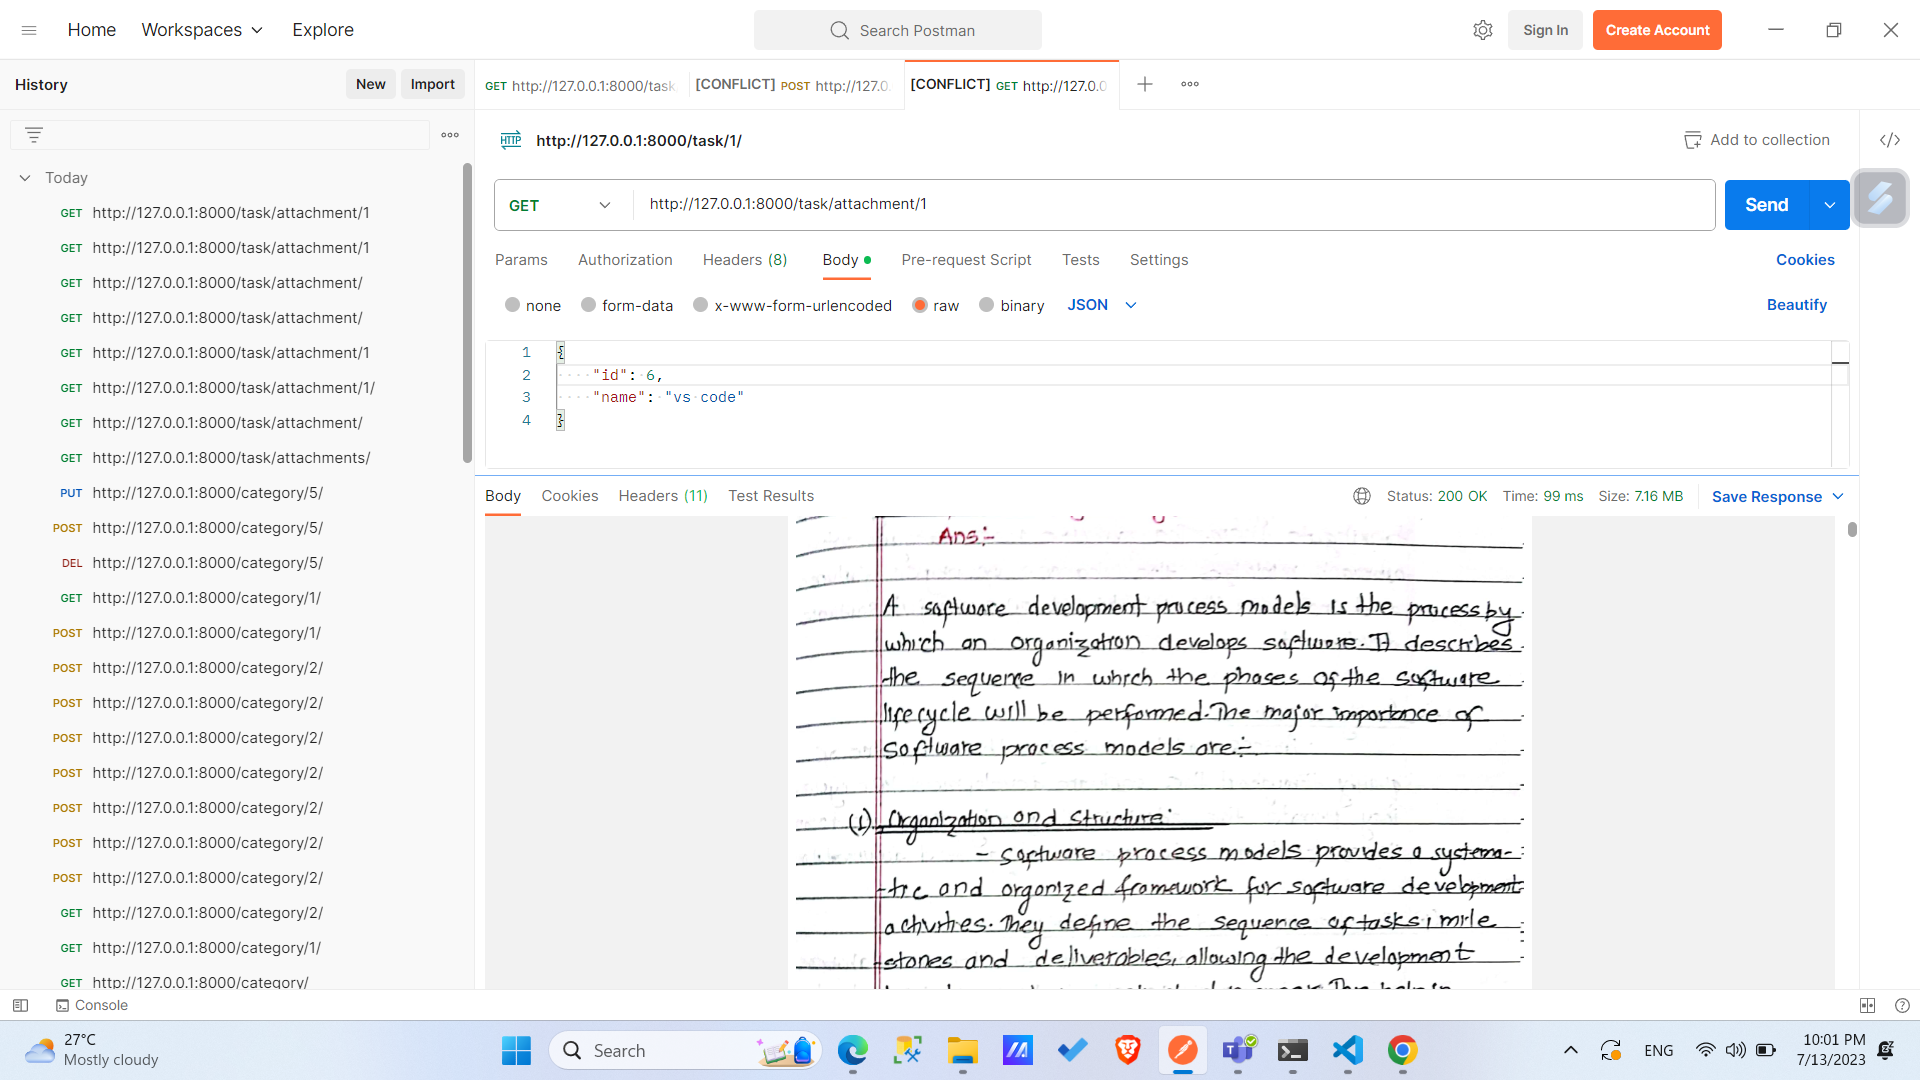 Home
Workspaces
Explore
Search Postman
Sign In
Create Account
History
New
Import
GET http://127.0.0.1:8000/task
[CONFLICT] POST http://127.0.
[CONFLICT] GET http://127.0.0
Today
GET http://127.0.0.1:8000/task/attachment/1
GET http://127.0.0.1:8000/task/attachment/1
GET http://127.0.0.1:8000/task/attachment/
GET http://127.0.0.1:8000/task/attachment/
GET http://127.0.0.1:8000/task/attachment/1
GET http://127.0.0.1:8000/task/attachment/1/
GET http://127.0.0.1:8000/task/attachment/
GET http://127.0.0.1:8000/task/attachments/
PUT http://127.0.0.1:8000/category/5/
POST http://127.0.0.1:8000/category/5/
DEL http://127.0.0.1:8000/category/5/
GET http://127.0.0.1:8000/category/1/
POST http://127.0.0.1:8000/category/1/
POST http://127.0.0.1:8000/category/2/
POST http://127.0.0.1:8000/category/2/
POST http://127.0.0.1:8000/category/2/
POST http://127.0.0.1:8000/category/2/
POST http://127.0.0.1:8000/category/2/
POST http://127.0.0.1:8000/category/2/
POST http://127.0.0.1:8000/category/2/
GET http://127.0.0.1:8000/category/2/
GET http://127.0.0.1:8000/category/1/
GET http://127.0.0.1:8000/category/
HTTP http://127.0.0.1:8000/task/1/
Add to collection
GET http://127.0.0.1:8000/task/attachment/1
Send
Params Authorization Headers (8) Body Pre-request Script Tests Settings
Cookies
none form-data x-www-form-urlencoded raw binary JSON
Beautify
1 {
2 "id": 6,
3 "name": "vs code"
4 }
Body Cookies Headers (11) Test Results
Status: 200 OK Time: 99 ms Size: 7.16 MB
Save Response
Ans:-
A software development process models is the process by
which an organization develops software. It describes
the sequence in which the phases of the software
lifecycle will be performed. The major importance of
software process models are:-
(1). Organization and Structure:
- Software process models provides a systema-
-tic and organized framework for software development
activities. They define the sequence of tasks, mile
-stones and deliverables, allowing the development
Console
27°C
Mostly cloudy
Search
ENG
10:01 PM
7/13/2023